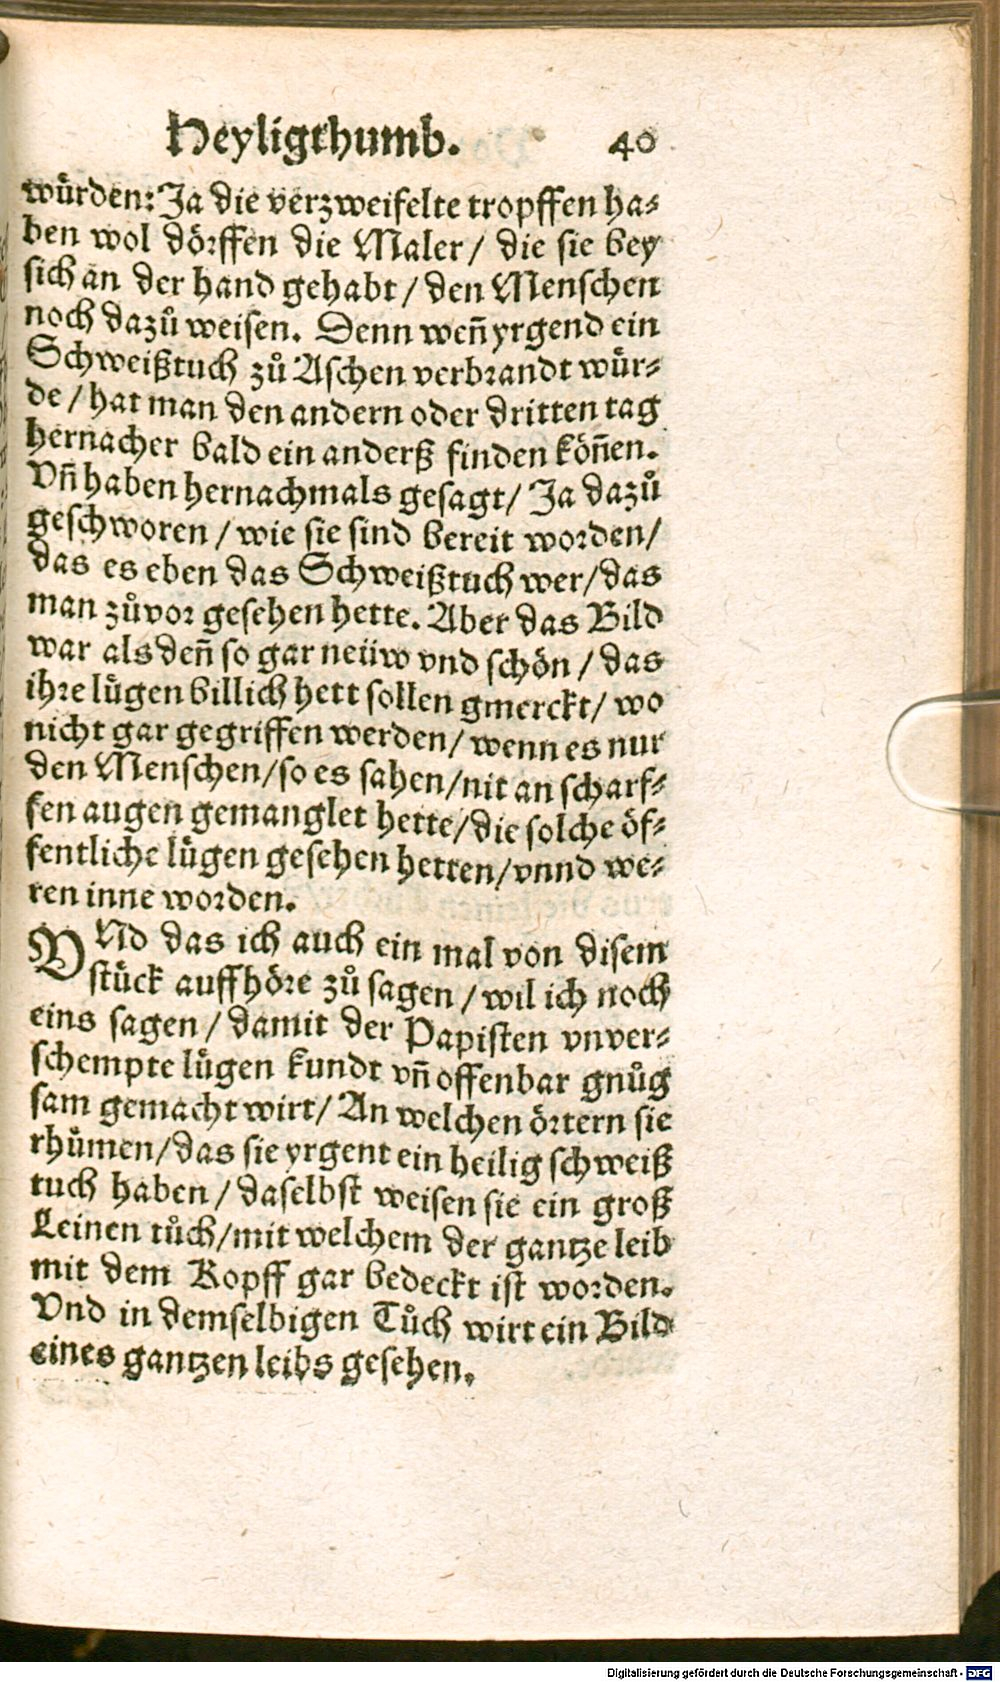 Heyligthumb. 40
wuͤrden: Ja die verzweifelte tropffen ha⸗
ben wol doͤrffen die Maler / die sie bey
sich an der hand gehabt / den Menschen
noch dazů weisen. Denn weñ yrgend ein
Schweißtuch zů Aschen verbrandt wuͤr⸗
de / hat man den andern oder dritten tag
hernacher bald ein anderß finden koͤñen.
Vñ haben hernachmals gesagt / Ja dazů
geschworen / wie sie sind bereit worden /
das es eben das Schweißtuch wer / das
man zůvor gesehen hette. Aber das Bild
war als deñ so gar neüw vnd schoͤn / das
ihre luͤgen billich hett sollen gmerckt / wo
nicht gar gegriffen werden / wenn es nur
den Menschen / so es sahen / nit an scharf⸗
fen augen gemanglet hette / die solche oͤf⸗
fentliche luͤgen gesehen hetten / vnnd we⸗
ren inne worden.
VNd das ich auch ein mal von disem
stuͤck auffhoͤre zů sagen / wil ich noch
eins sagen / damit der Papisten vnver⸗
schempte luͤgen kundt vñ offenbar gnůg
sam gemacht wirt / An welchen oͤrtern sie
rhuͤmen / das sie yrgent ein heilig schweiß
tuch haben / daselbst weisen sie ein groß
Leinen tůch / mit welchem der gantze leib
mit dem Kopff gar bedeckt ist worden.
Vnd in demselbigen Tůch wirt ein Bild
eines gantzen leibs gesehen.
Digitalisierung gefördert durch die Deutsche Forschungsgemeinschaft - DFG